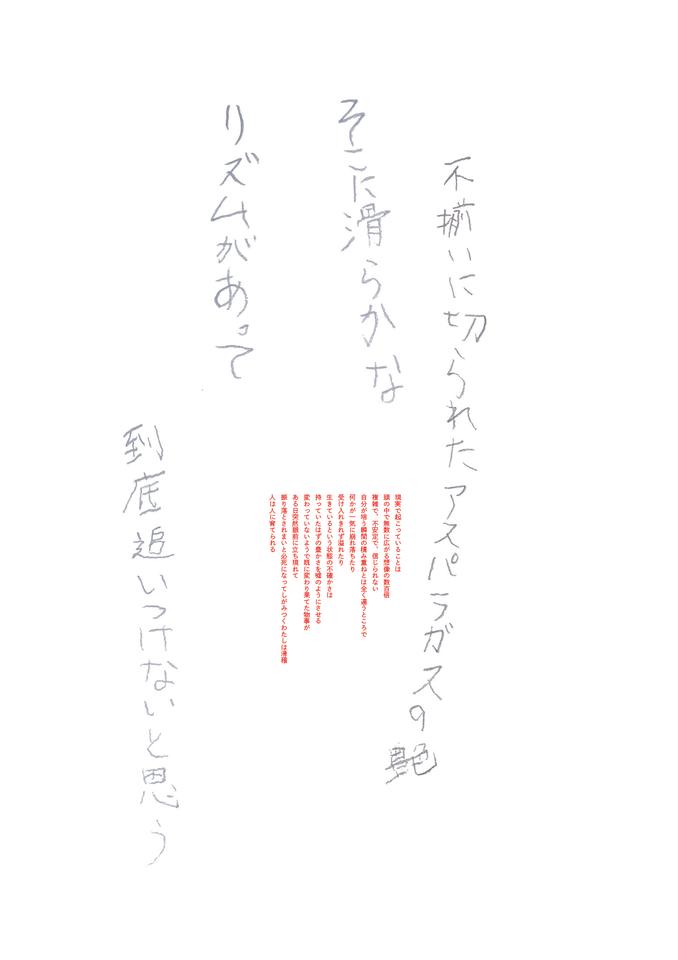 不揃いに切られたアスパラガスの艶
そこに滑らかな
リズムがあって
到底追いつけないと思う
現実で起こっていることは
頭の中で無数に広がる想像の数百倍
複雑で、不安定で、信じられない
自分が培う瞬間の積み重ねとは全く違うところで
何かが一気に崩れ落ちたり
受け入れきれず溢れたり
生きているという状態の不確かさは
持っていたはずの豊かさを嘘のようにさせる
変わっていないようで既に変わり果てた物事が
ある日突然眼前に立ち現れて
振り落とされまいと必死になってしがみつくわたしは滑稽
人は人に育てられる